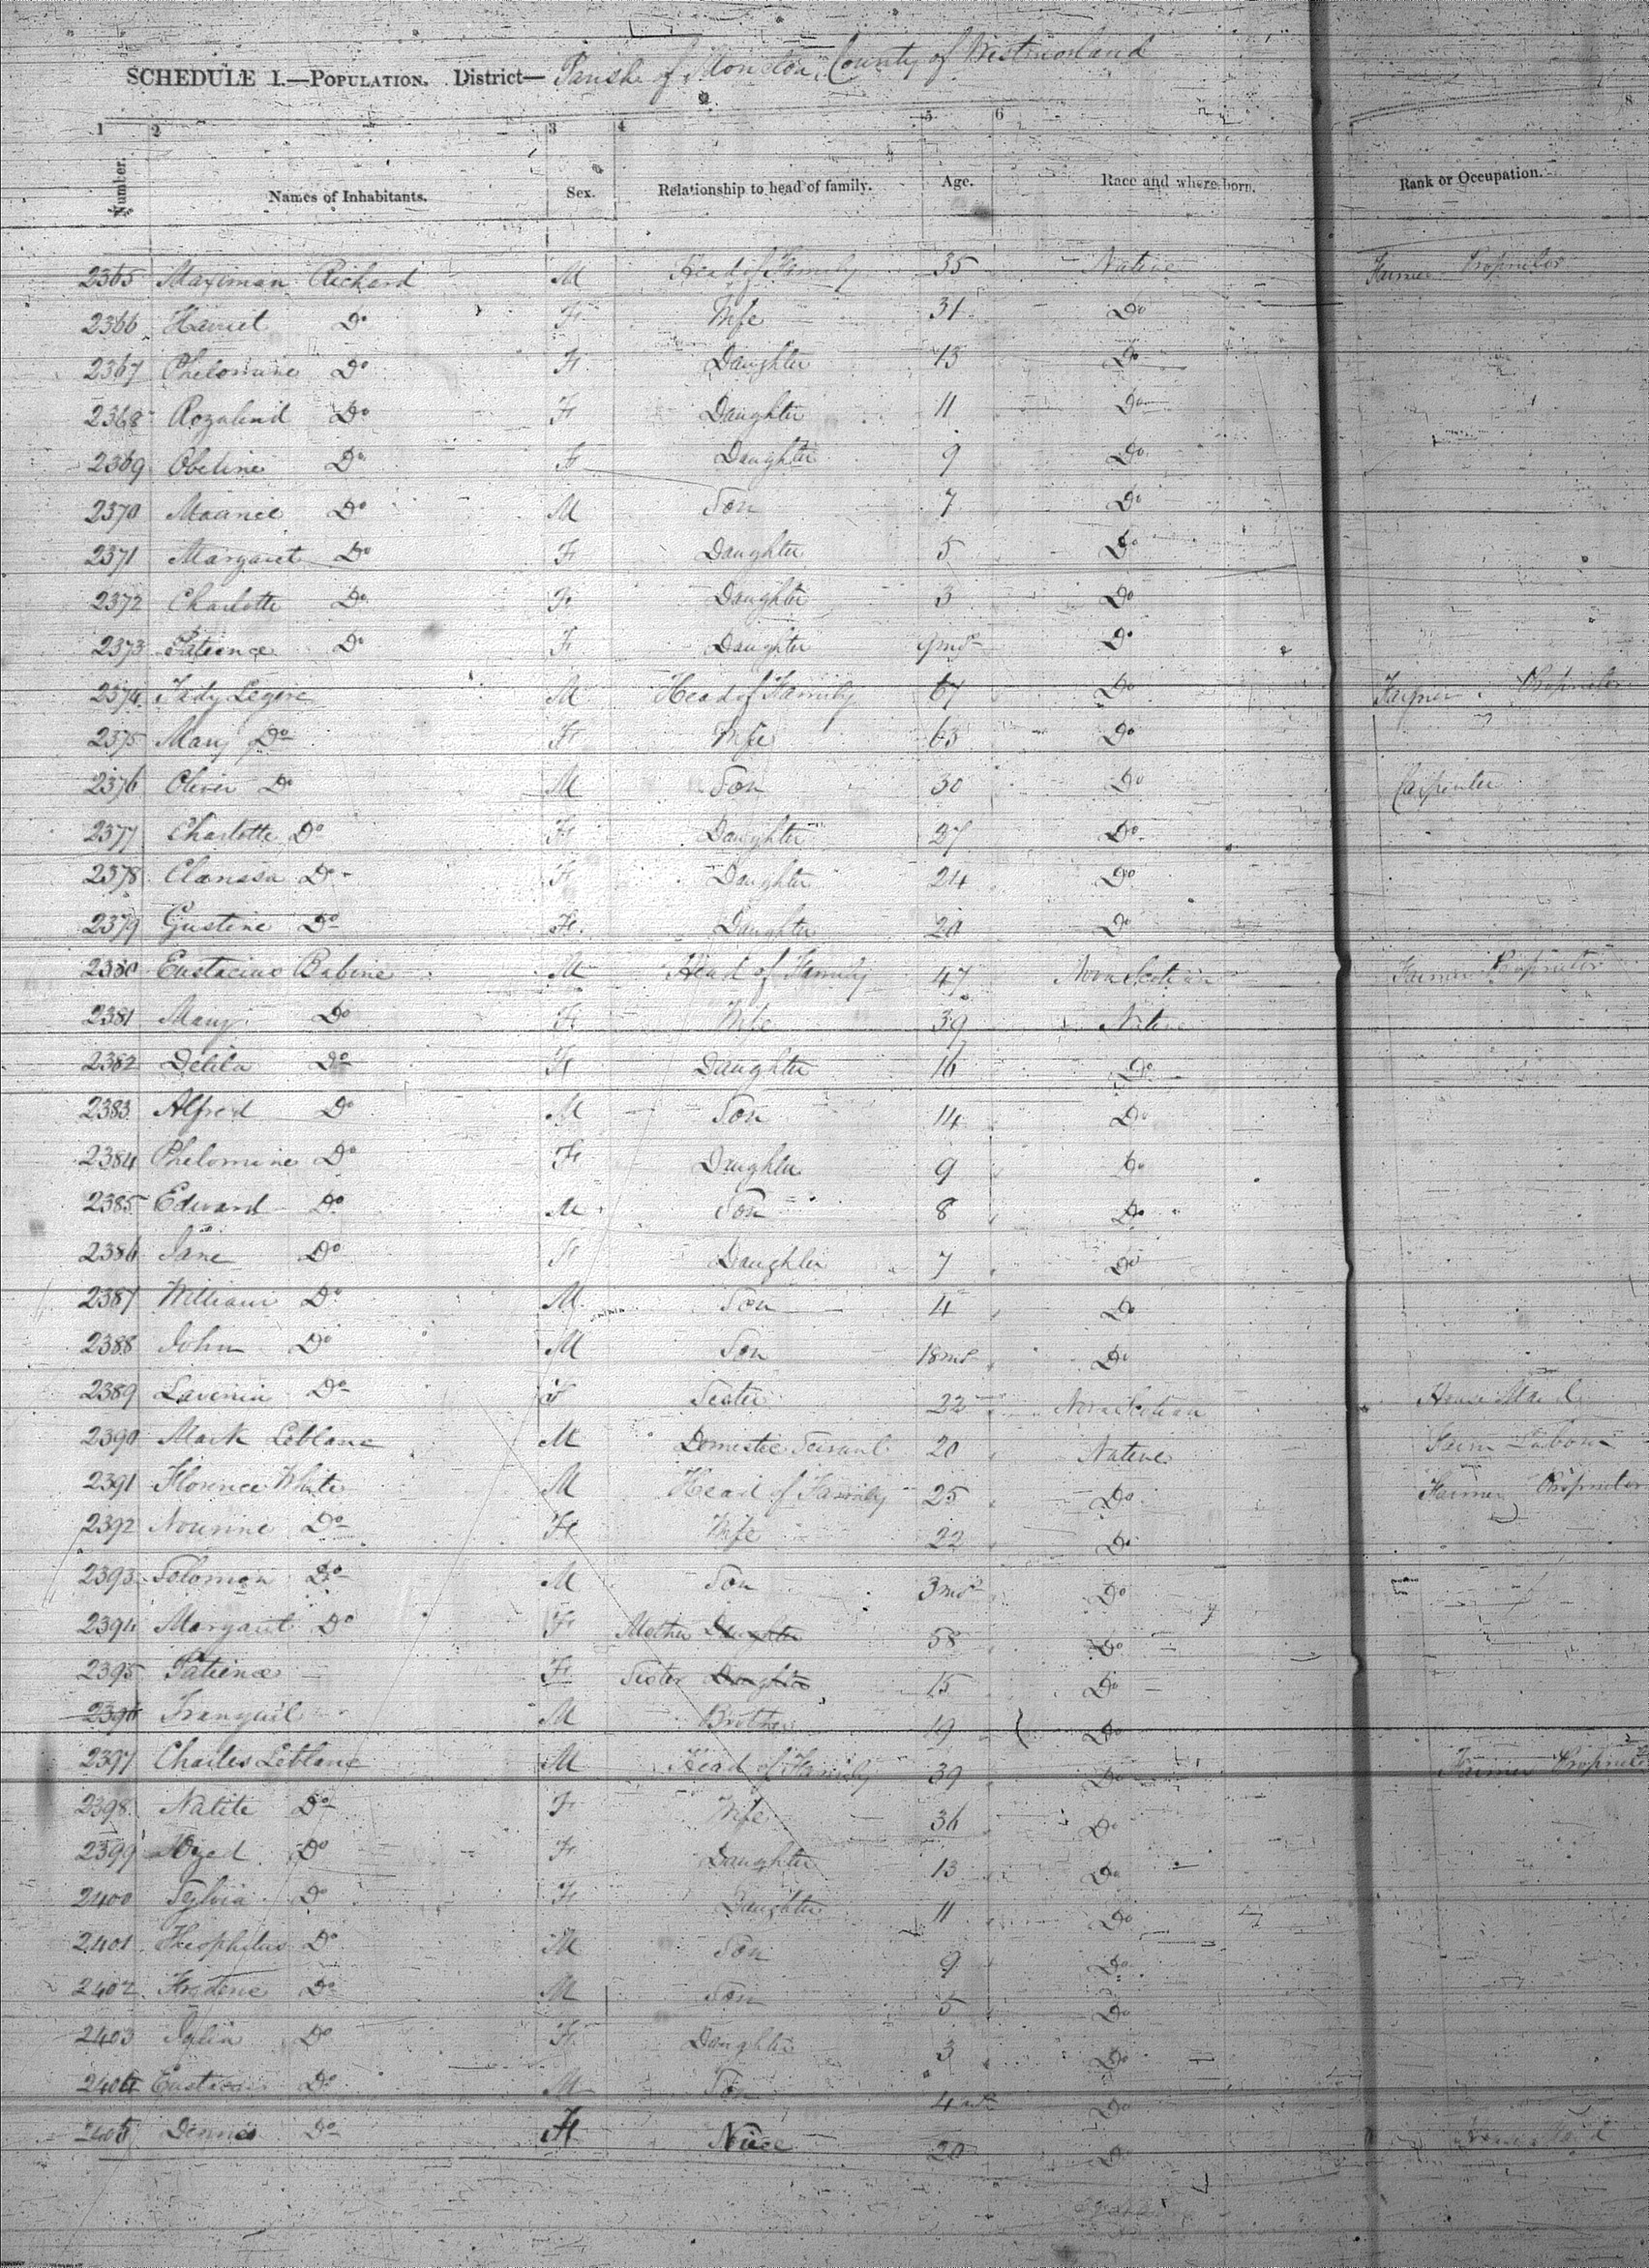 SCHEDULE I.—POPULATION. District— Parish of Moncton, County of Westmorland
1 2 3 4 5 6 8
Number. Names of Inhabitants. Sex. Relationship to head of family. Age. Race and where born. Rank or Occupation.
2365 Maximan Richard M Head of Family 35 Native Farmer Proprietor
2366 Harriet Do F Wife 31 Do
2367 Phelomine Do F Daughter 13 Do
2368 Rozalind Do F Daughter 11 Do
2369 Obeline Do F Daughter 9 Do
2370 Do M Son 7 Do
2371 Margaret Do F Daughter 5 Do
2372 Charlotte Do F Daughter 3 Do
2373 Patience Do F Daughter 9mos Do
2374 Tady Legere M Head of Family 67 Do Farmer Proprietor
2375 Mary Do F Wife 63 Do
2376 Oliver Do M Son 30 Do Carpenter
2377 Charlotte Do F Daughter 27 Do
2378 Clarissa Do F Daughter 24 Do
2379 Gustine Do F Daughter 20 Do
2380 Eustacius Babine M Head of Family 47 Nova Scotian Farmer Proprietor
2381 Mary Do F Wife 39 Native
2382 Delila Do F Daughter 16 Do
2383 Alfred Do M Son 14 Do
2384 Phelomine Do F Daughter 9 Do
2385 Edward Do M Son 8 Do
2386 Jane Do F Daughter 7 Do
2387 William Do M Son 4 Do
2388 John Do M Son 18mos Do
2389 Lavenia Do F Sister 22 Nova Scotian House Maid
2390 Mark Leblanc M Domestic Servant 20 Native Farm Labour
2391 Florence White M Head of Family 25 Do Farmer Proprietor
2392 Nounine Do F Wife 22 Do
2393 Solomon Do M Son 3mos Do
2394 Margaret Do F Mother Daughter 58 Do
2395 Patience F Sister Daughter 15 Do
2396 Tranquil M Brother 19 Do
2397 Charles Leblanc M Head of Family 39 Do Farmer Proprietor
2398 Natite Do F Wife 36 Do
2399 Do F Daughter 13 Do
2400 Sylvia Do F Daughter 11 Do
2401 Theophilus Do M Son 9 Do
2402 Do M Son 5 Do
2403 Do F Daughter 3 Do
2404 Do M Son Do
2405 Do F Niece 20 Do House Maid